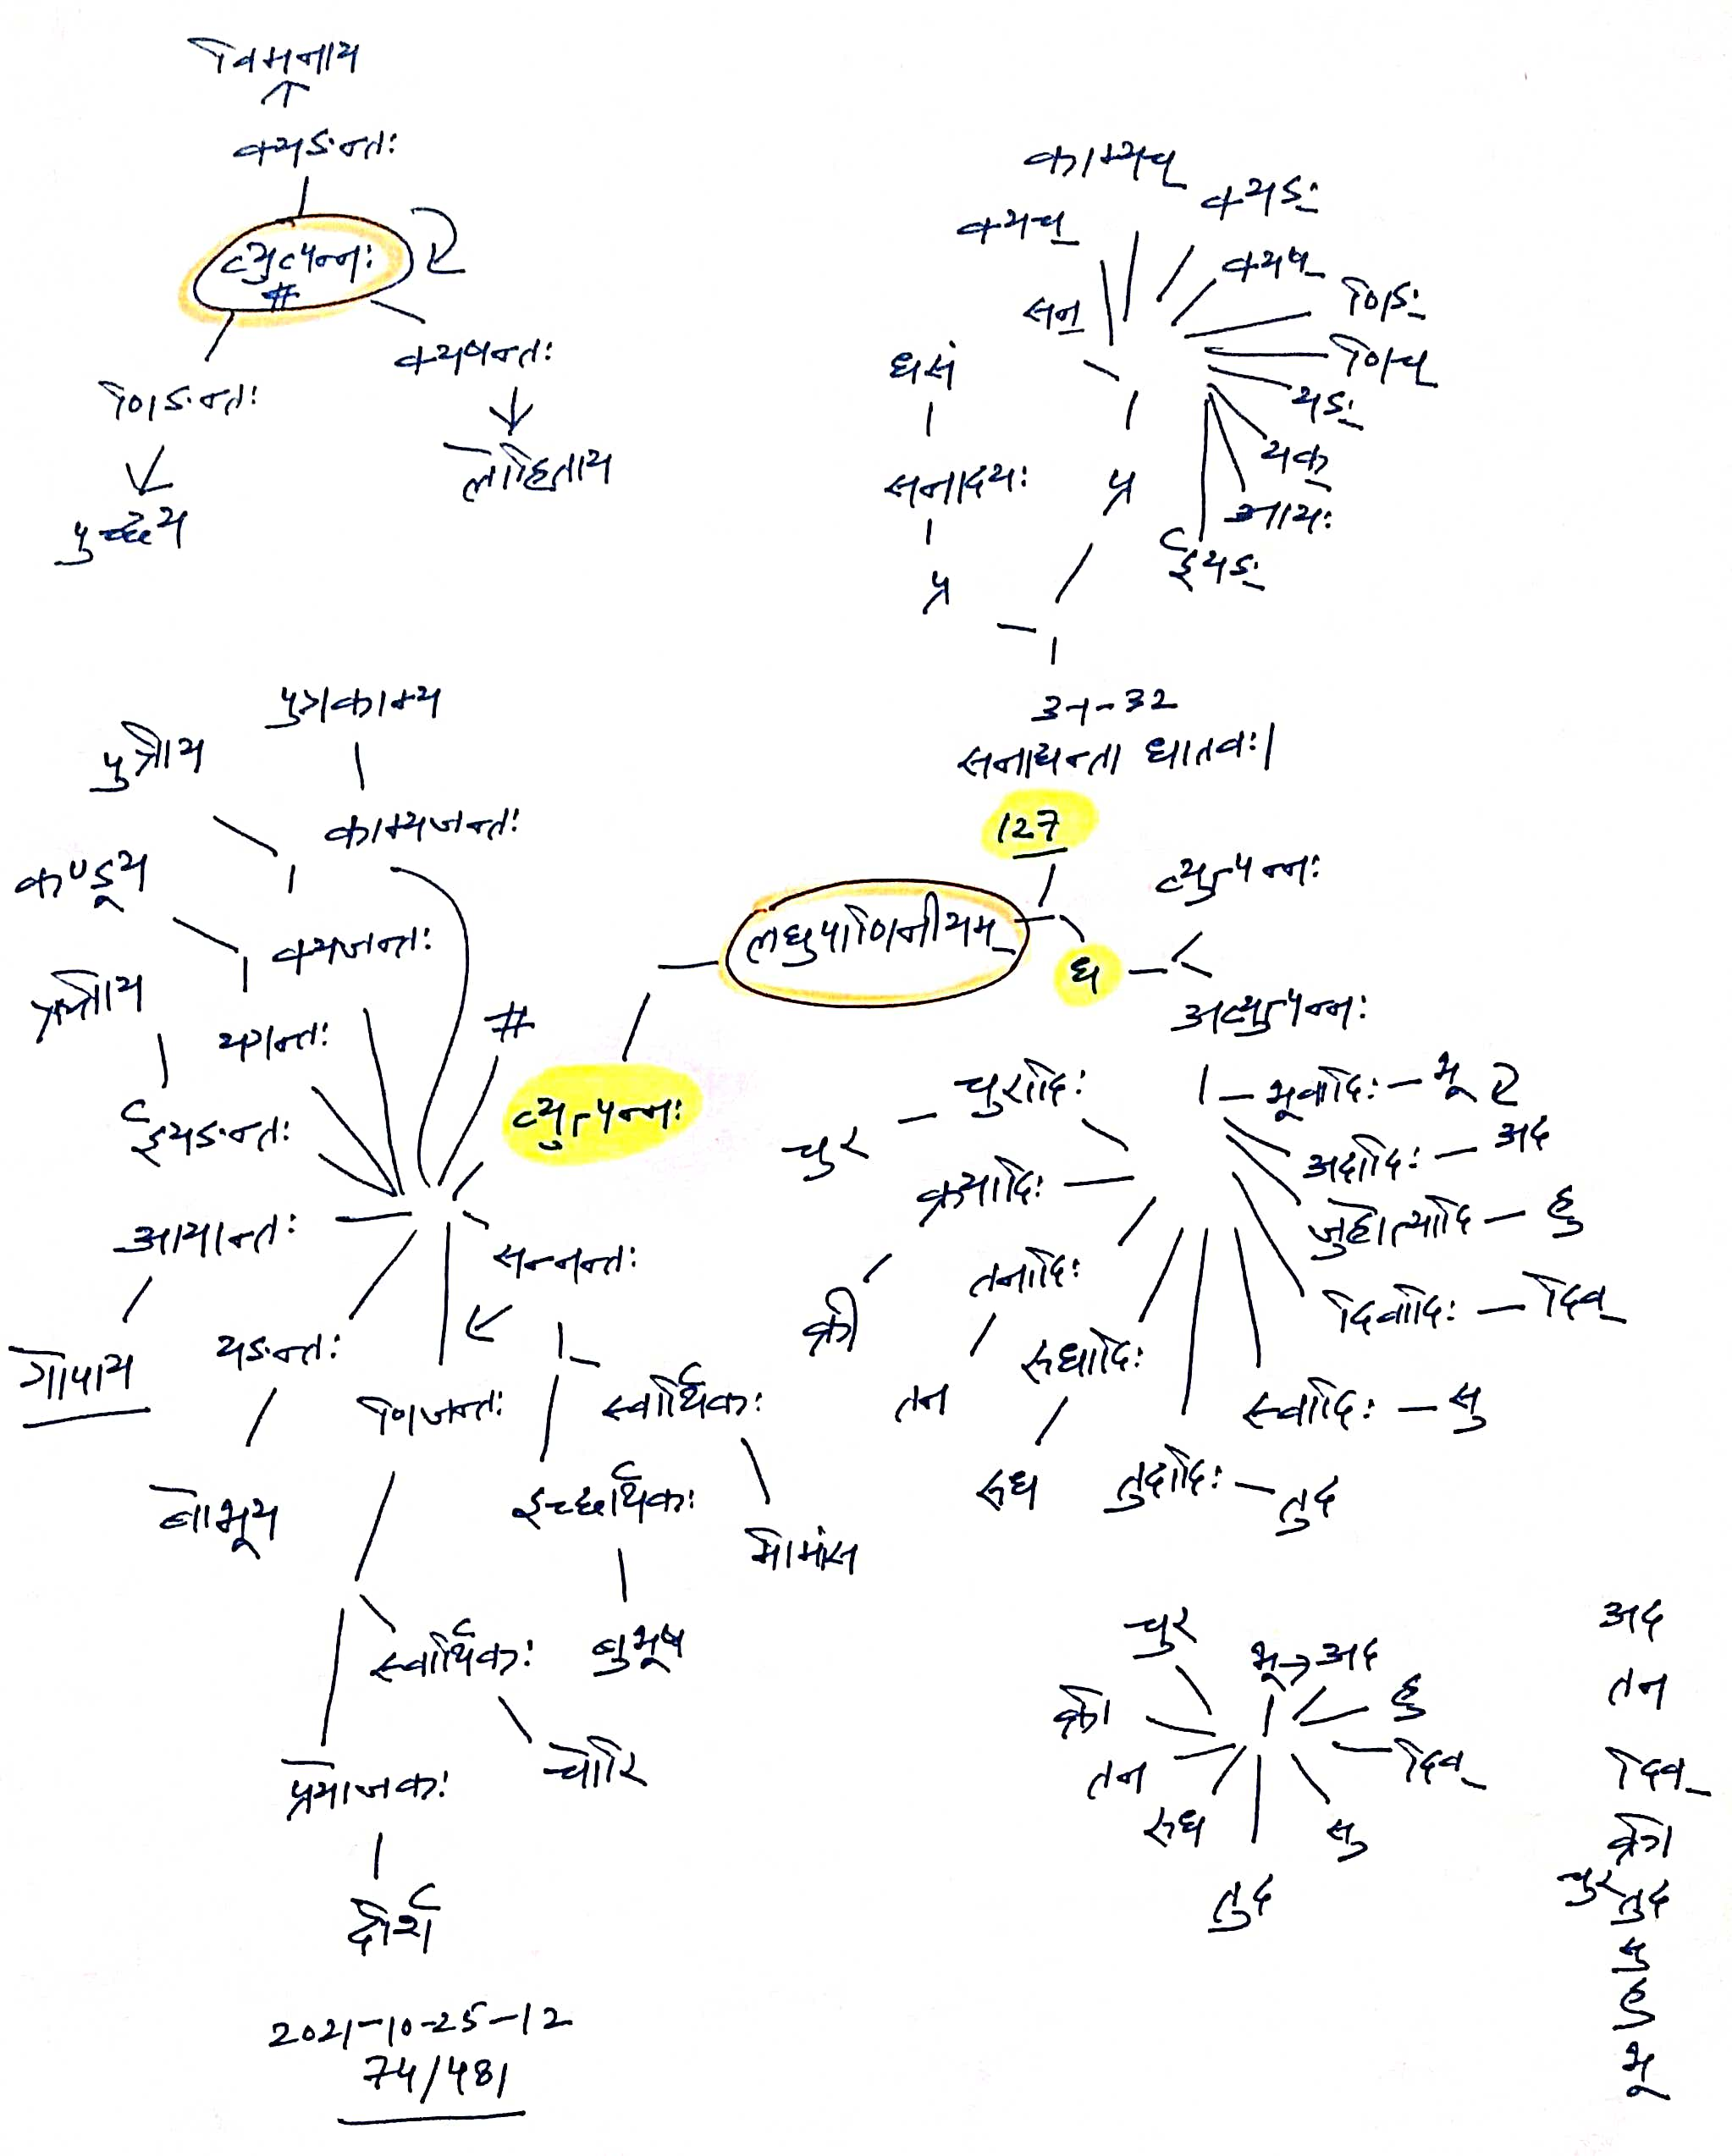 विमनाय
क्यङन्तः
व्युत्पन्नः
#
णिङन्तः
क्यषन्तः
लोहिताय
काम्यच्
क्यङ्
क्यच्
क्यष्
णिङ्
सन्
णिच्
धसं
यङ्
यक्
सनादयः
प्र
आयः
ईयङ्
प्र
3-1-32
सनाद्यन्ता धातवः।
127
पुत्रकाम्य
पुत्रीय
काम्यजन्तः
कण्डूय
क्यजन्तः
यगन्तः
ईयङन्तः
#
व्युत्पन्नः
लघुपाणिनीयम्
ध
व्युत्पन्नः
अव्युत्पन्नः
आयान्तः
गोपाय
यङन्तः
बोभूय
णिजन्तः
सन्नन्तः
स्वार्थिकः
इच्छार्थिकः
मीमांस
बुभूष
स्वार्थिकः
चोरि
प्रयोजकः
चुरादिः
चुर
क्र्यादिः
क्री
तनादिः
तन
रुधादिः
रुध
भूवादिः - भू
अदादिः - अद
जुहोत्यादि - हु
दिवादिः - दिव्
स्वादिः - सु
तुदादिः - तुद
चुर
भू → अद
क्री
हु
तन
दिव्
रुध
सु
तुद
अद
तन
दिव्
क्री
चुर
तुद
सु
हु
भू
2021-10-25-12
74/481